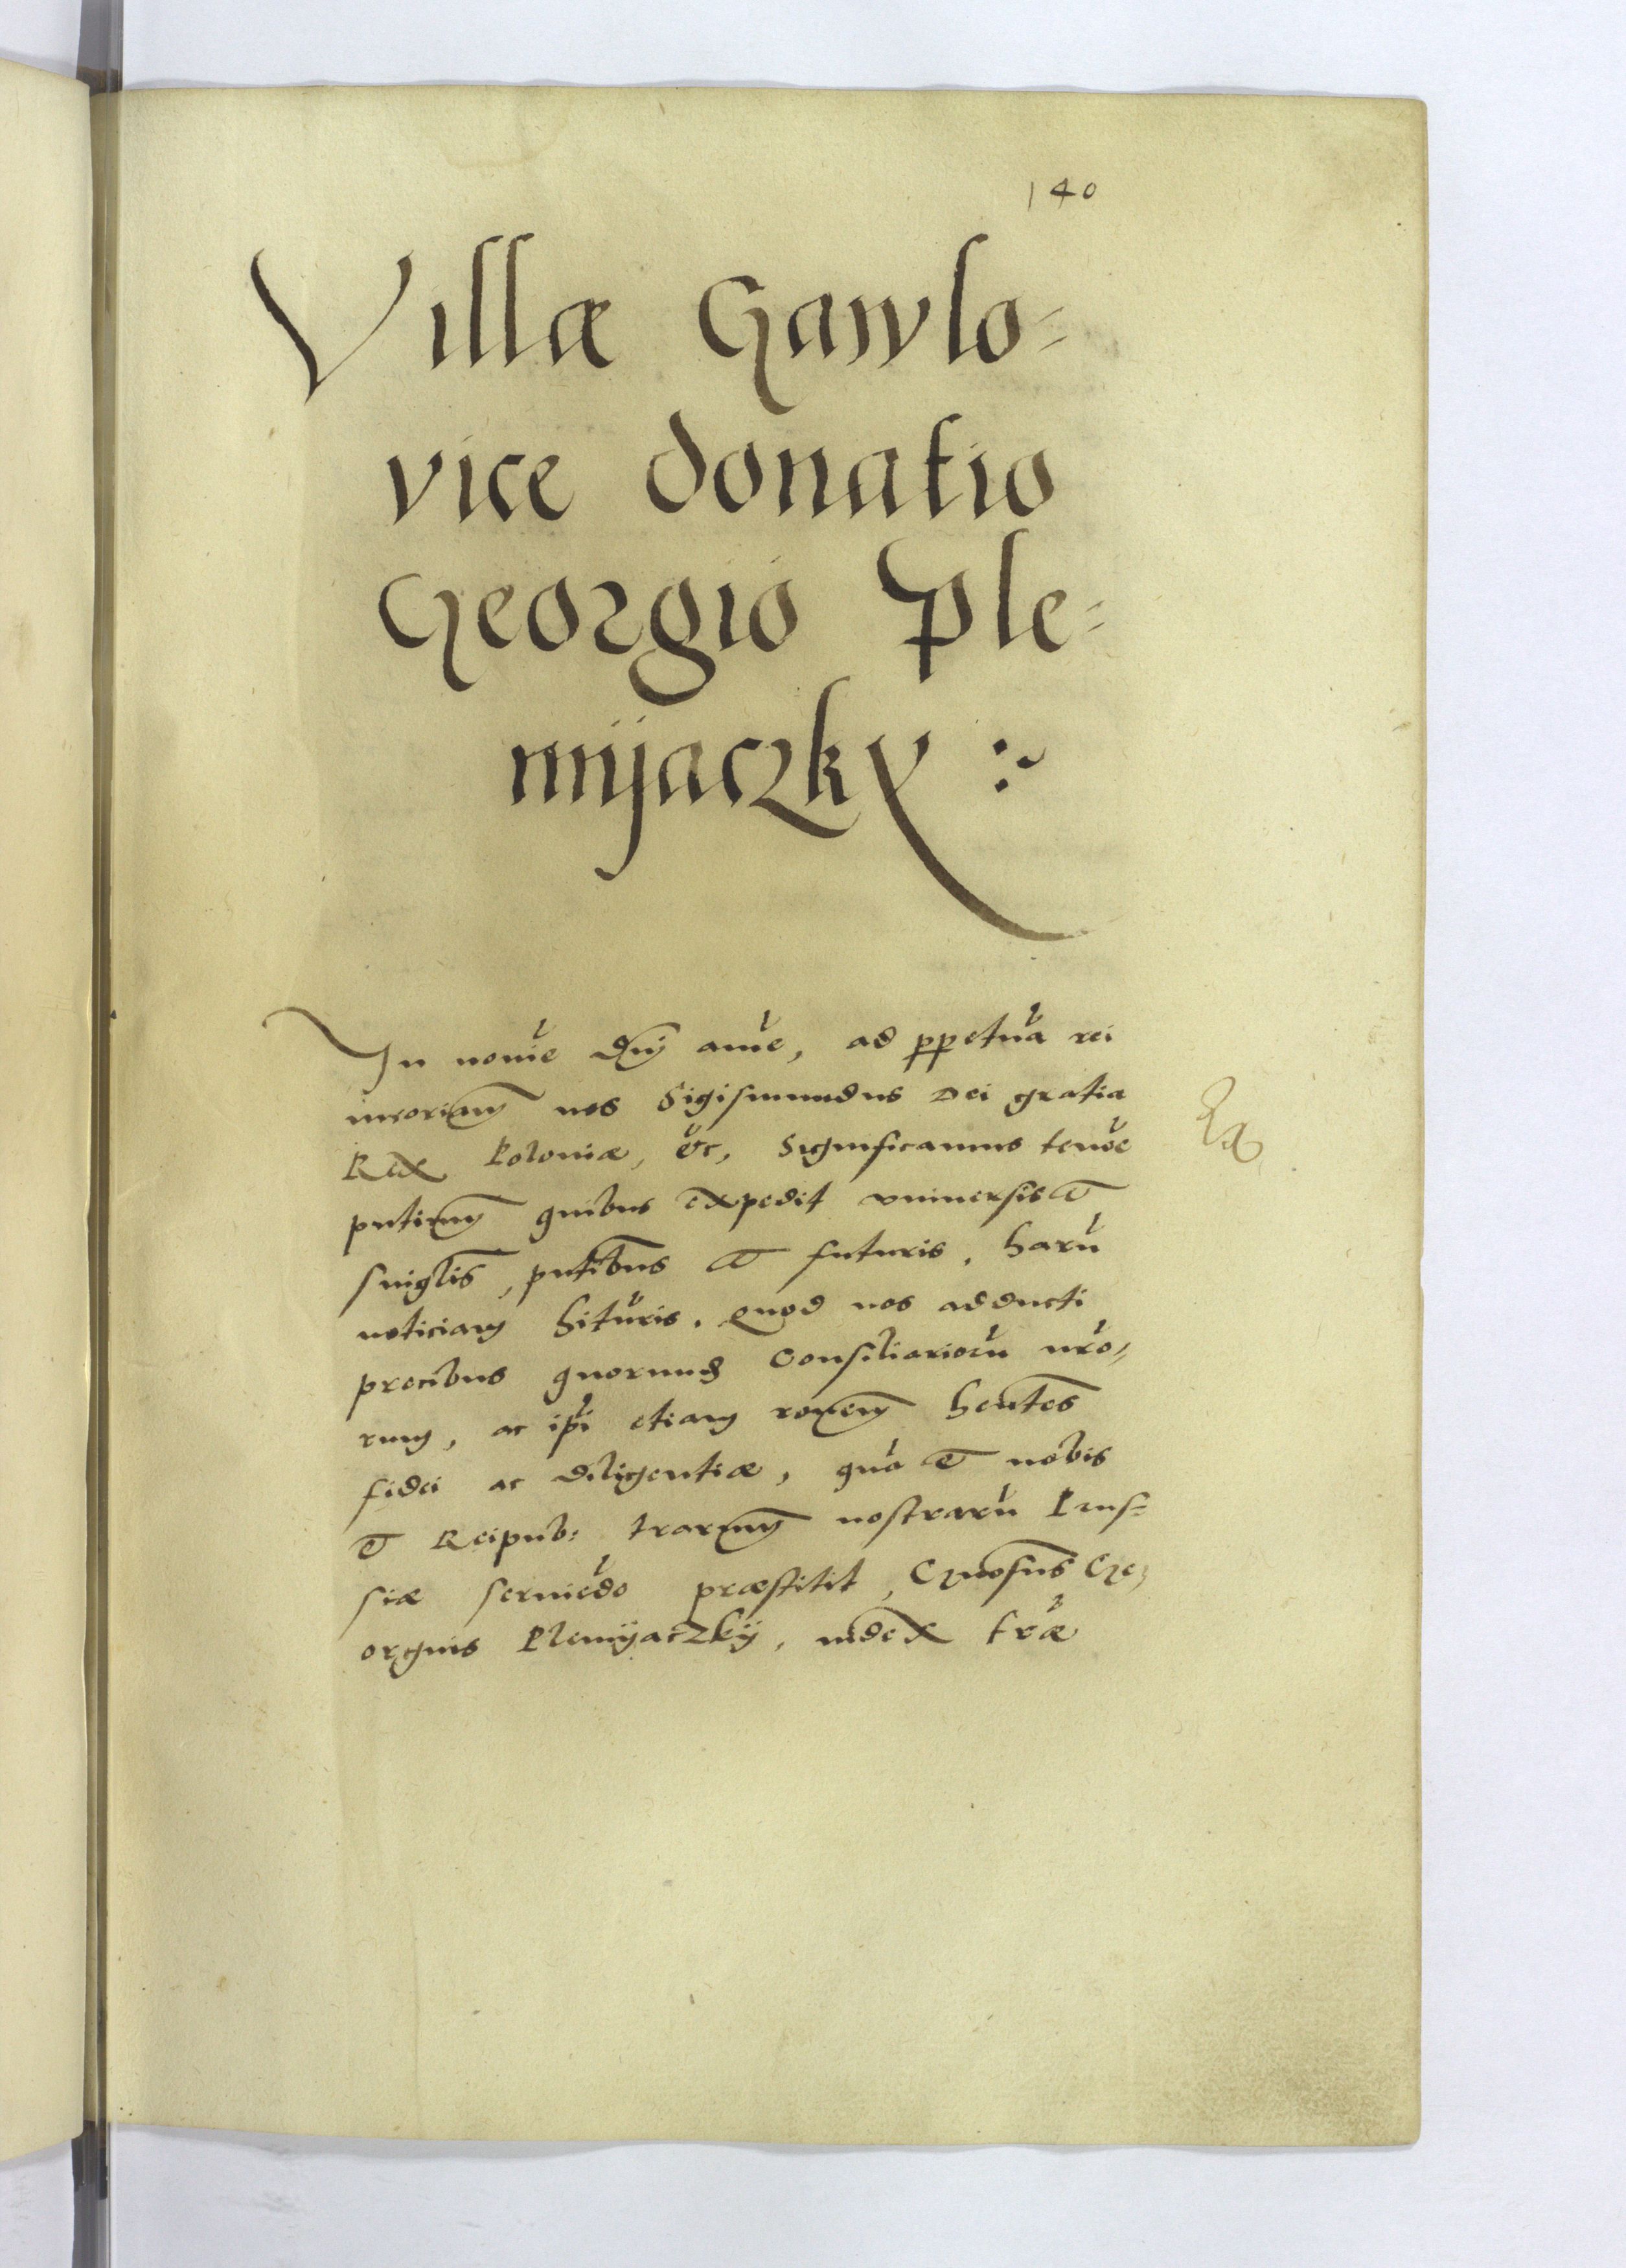 140
Villæ Gawlo=
vice donatio
Georgio Ple=
mijaczky :~
In noīe Dnī amē, ad ppetuā rei
mēoriam nos Sigismundus Dei gratia
Rex Poloniæ, etc, Significamus tenōe
pntium quibus expedit vniuersis et
singlis, pntibus et futuris, harū
noticiam hituris. Quod nos adducti
precibus quorund Consiliariorū nrō=
rum, ac ipī etiam ronem hentes
fidei ac diligentiæ, quā et nobis
et Reipub: trarum nostrarū Prus=
siæ seruiēdo præstitit, Gnosus Ge=
orgius Plemÿaczkÿ, iudex træ